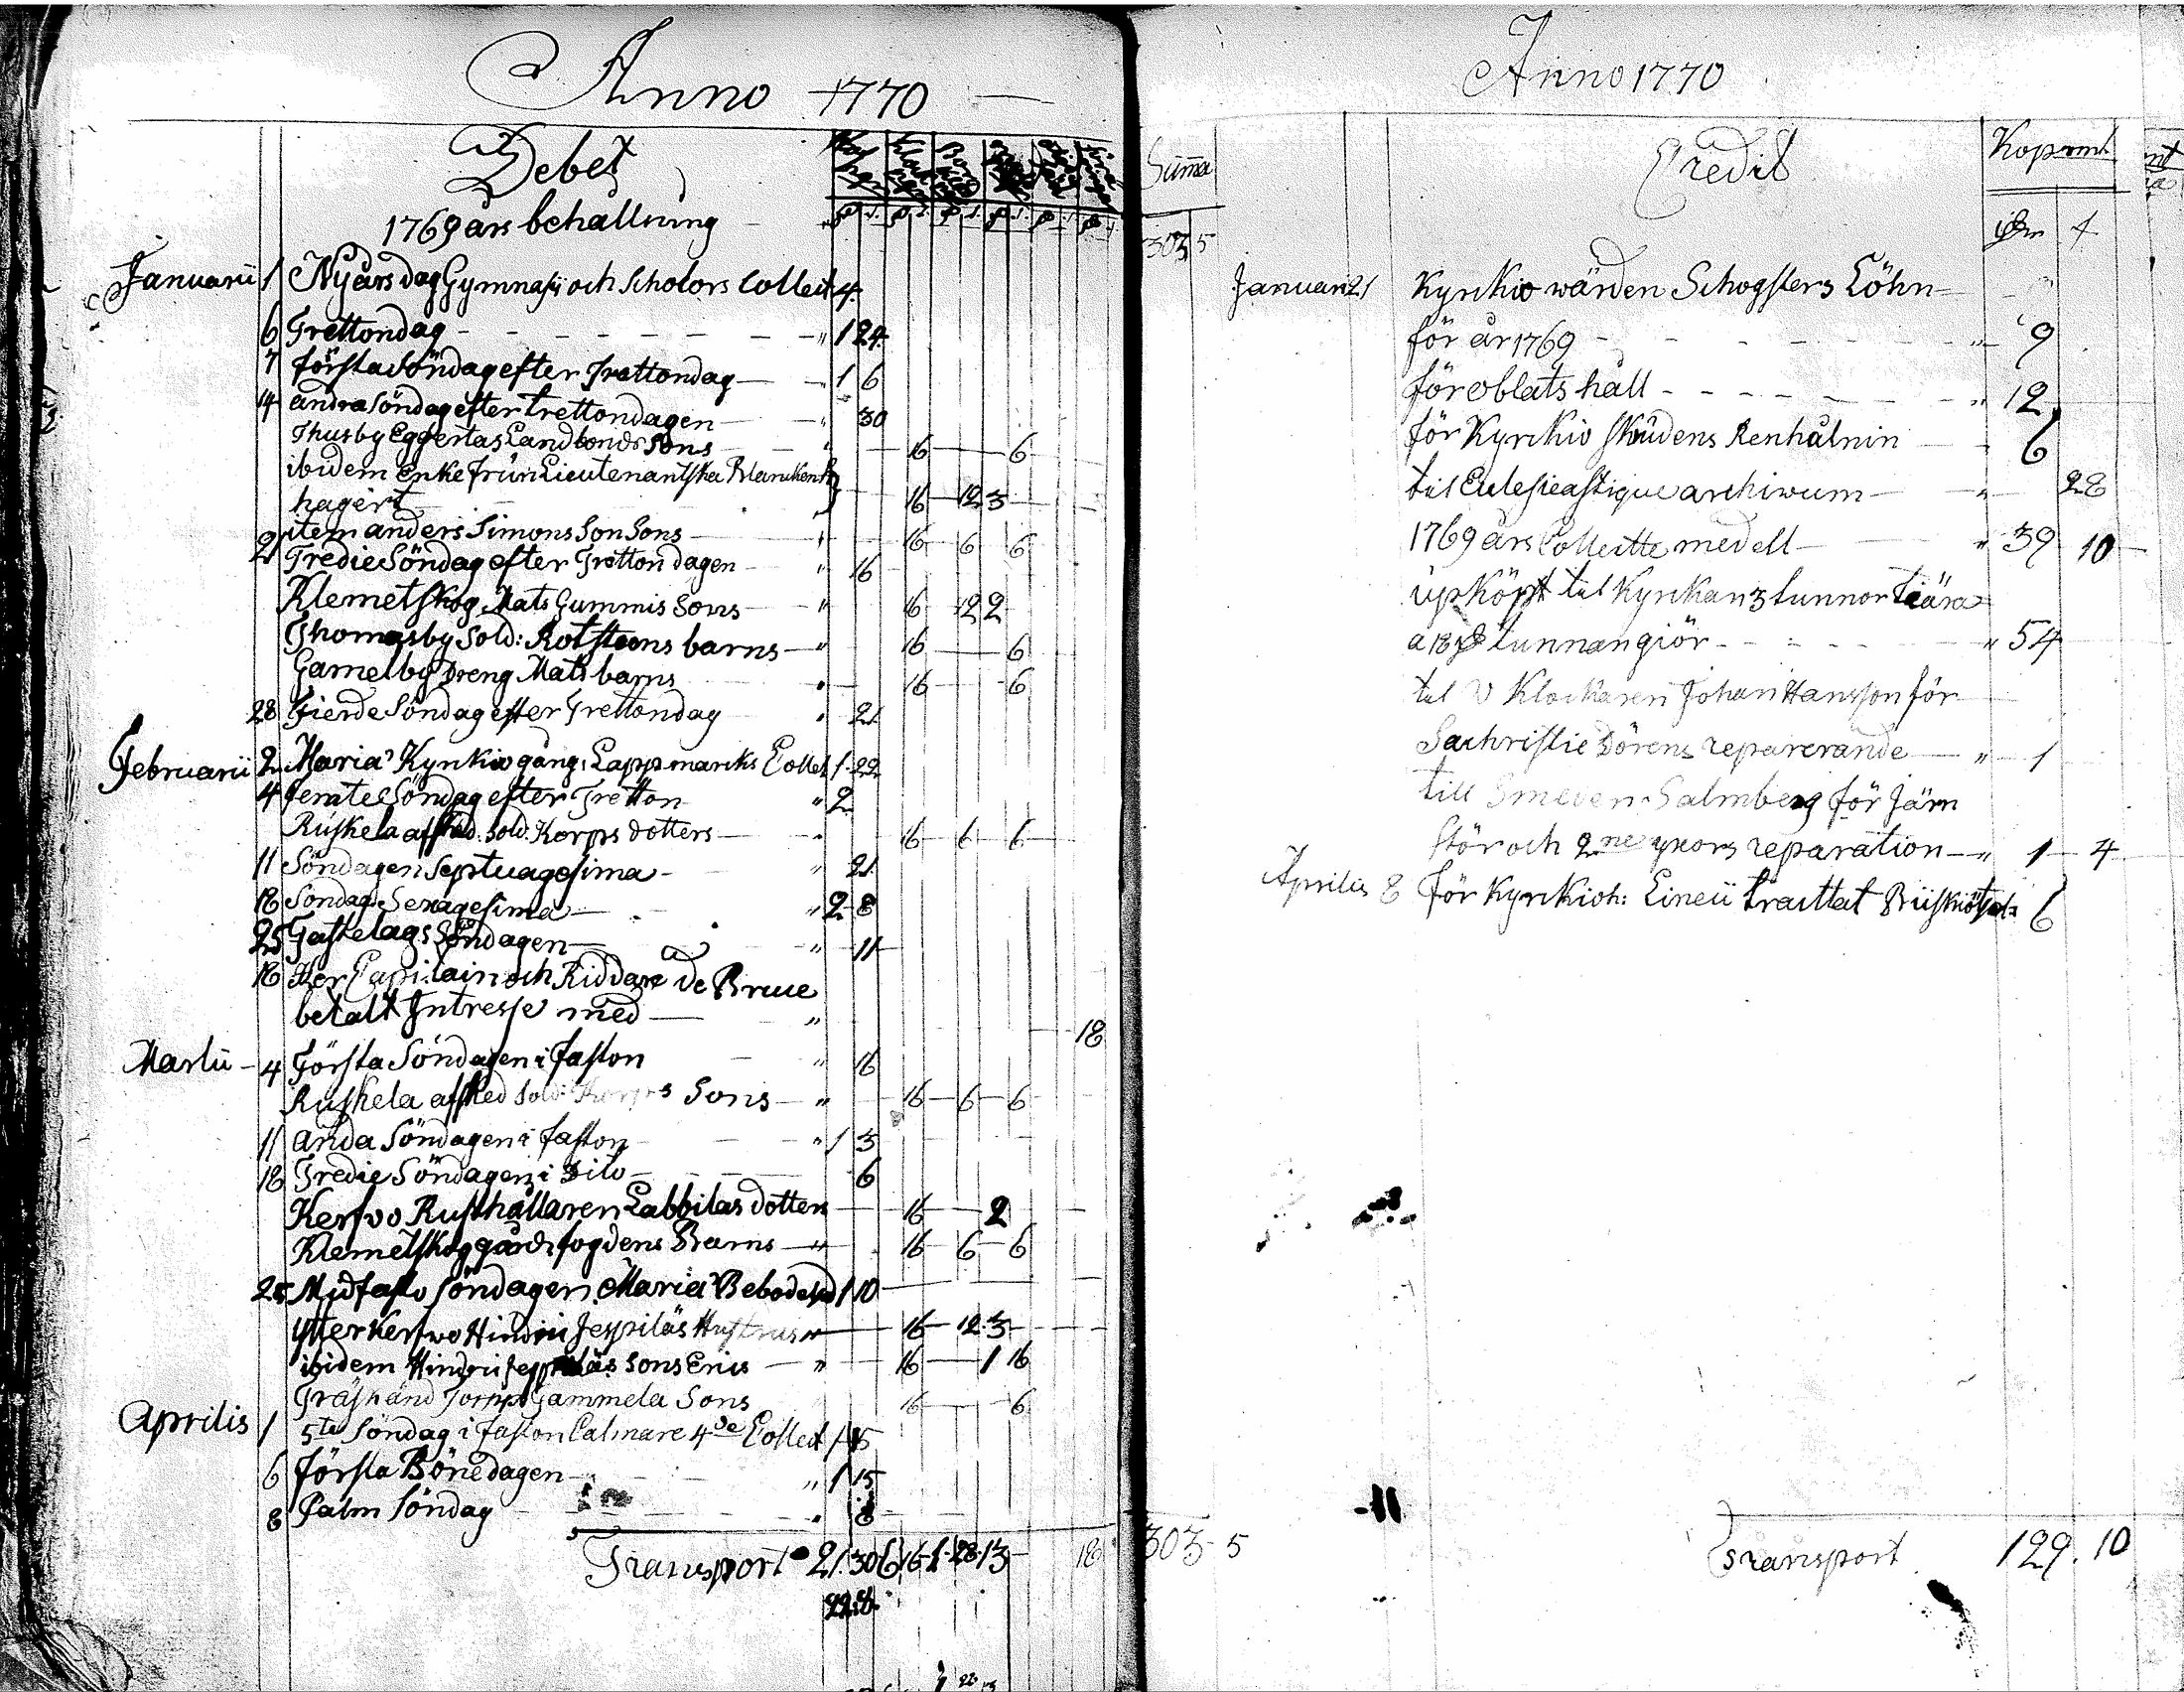 Anno 1770
Debet
1769 års behållning
Januarii 1 Nyårsdag Gymnasii och Scholors Collect 4
6 Trettondag " 1 24
7 första Söndag efter Trettondag 1 6
14 andra Söndag efter trettondagen 30
Thusby Eggertas Landbonds Sons 16 6
ibidem Enke frün Lieutenantska Blanckenhagen 16 12 3
item anders Simons Son Sons 16 6 6
21 Tredie Söndag efter Trettondagen " 16
Klemetskog Mats Gummis Sons " 16 12 2
Thomasby Sold: Rotsteens barns " 16 6
Gamelby Dreng Mats barns 16 6
28 Fierde Söndag efter Trettondag 21
Februarii 2 Mariæ Kyrckio gång, Lappmarcks Collect 1 22
4 femte Söndag efter Tretton " 2
Ruskela afsked. Sold. Korps dotters 16 6 6
11 Söndagen Septuagesima " 21
18 Söndag Sexagesima " 2 8
25 Fastelags Söndagen " 11
18 Her Capitain och Riddare de Bruce
betalt Intresse med " 18
Martii 4 Första Söndagen i faston " 16
Ruskela afsked Sold: Korps Sons " 16 6 6
11 anda Söndagen i faston " 1 3
18 Tredie Söndagen i dito 6
Kerfvo Rusthållaren Labbilas dotters 16 2
Klemetskog gårds fogdens Barns " 16 6 6
25 Midfasto Söndagen Mariæ Bebodelsed 1 10
Ytterkerfwo Hindric Jespiläs Hustrus " 16 12 3
ibidem Hindric Jespiläs Sons Erics " 16 1 16
Träskänd Torpp Gammela Sons 16 6
Aprilis 1 5te Söndag i faston Calmare 4de Collect 1 15
6 första Bönedagen " 1 15
8 Palm Söndag 8
Transport 21. 30 6 16 1 28 13 18
22.8.
Anno 1770
Summa Credit Kopp mt
303 5
Januari 21 Kyrckio wärden Schogsters Löhn
för år 1769 " 9
för oblats håll " 12
för Kyrckio skrudens Renhålnin 6
till Ecclesieastique archiwum " 28
1769 års Collectte medell " 39 10
üpköpt til Kyrckan 3 tunnor tiära
a 18 tunnan giör " 54
till Klockaren Johan Hansson för
Sachristie Dörens reparerande " 1
till Smeden Salmberg för Järn
stör och 2ne reparation " 1 4
Aprilis 8 för Kyrckioh: 6
303 5
Transport 129. 10